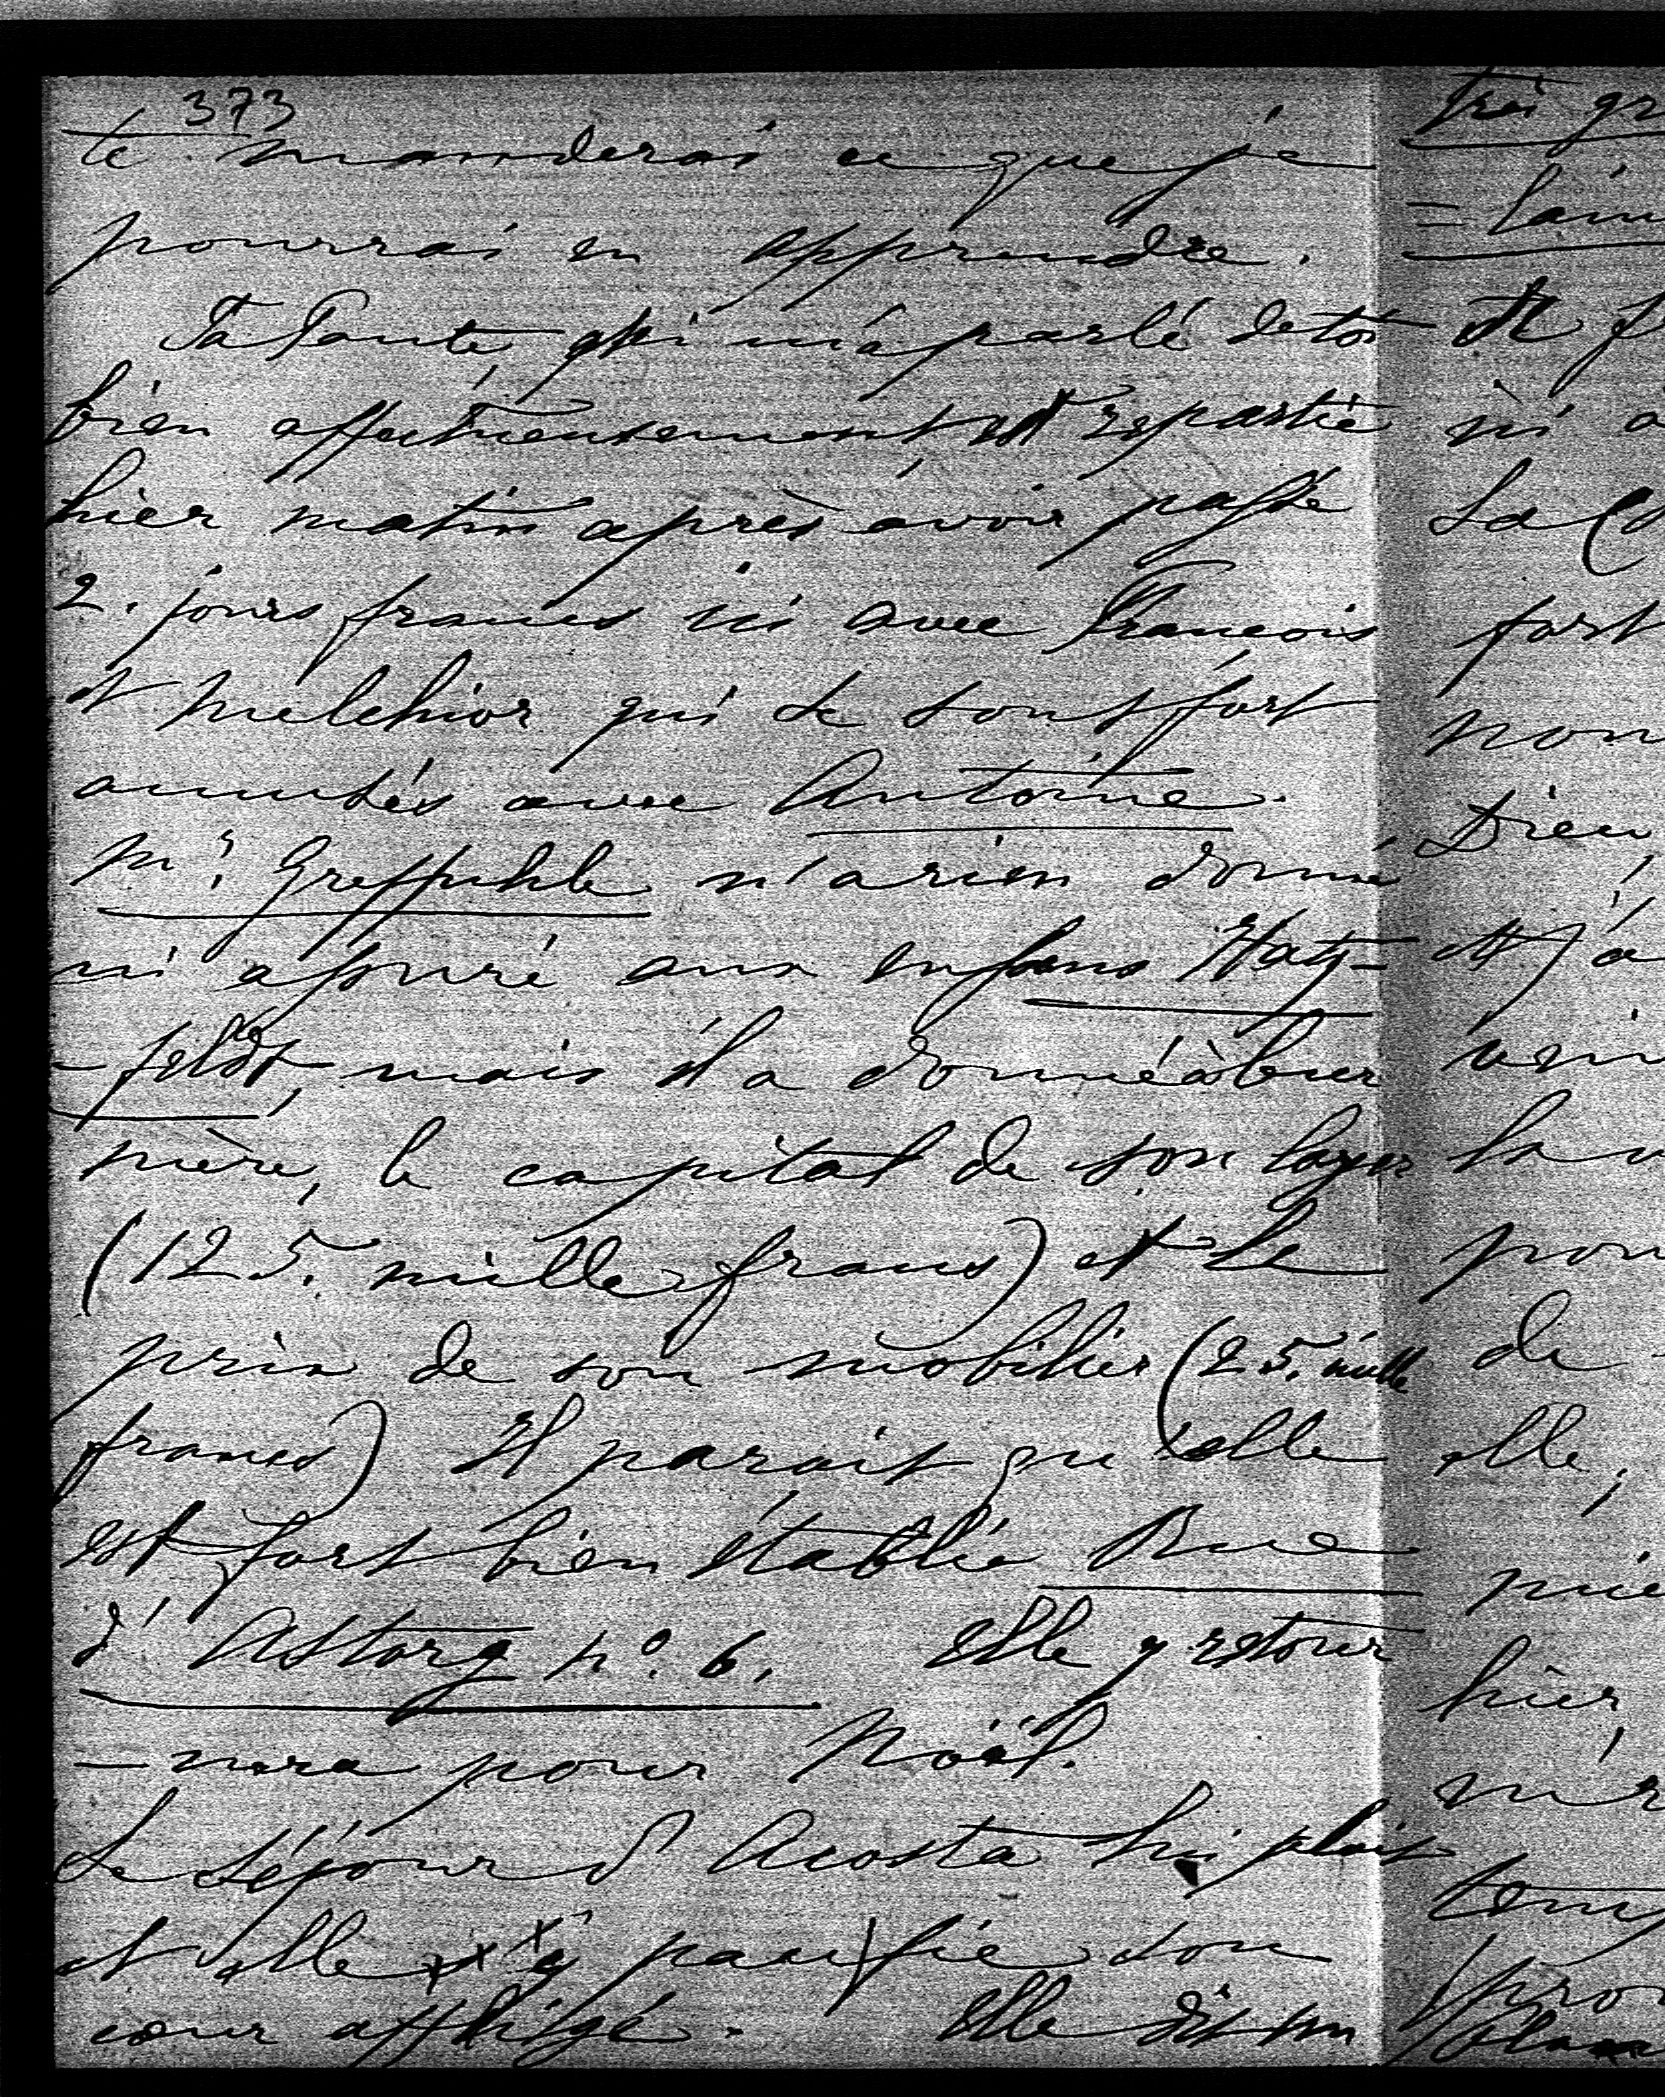 373
te manderai ce que je
pourrai en apprendre.
Ta Tante, qui m'a parlé de toi
bien affectueusement est repartie
hier matin après avoir passé
2. jours francs ici avec François
et Melchior qui se sont fort
amusés avec Antoine.
Mr. Greffuhle n'a rien donné
ni assuré aux enfans Hatz-
-feldt, mais il a donné à leur
mère, le capital de son loyer
(125. mille francs) et le
prix de son mobilier (25. mille
francs) Il parait qu'elle
est fort bien établie Rue
d'Astorg no. 6. Elle y retour
-nera pour Noël.
Le séjour d'Acosta lui plait
et elle y pacifie son
cœur affligé. Elle dit un
très gr
et f
ni a
La (
fort
non
Dieu,
et j'a
veni
la v
pou
de
elle,
hier,